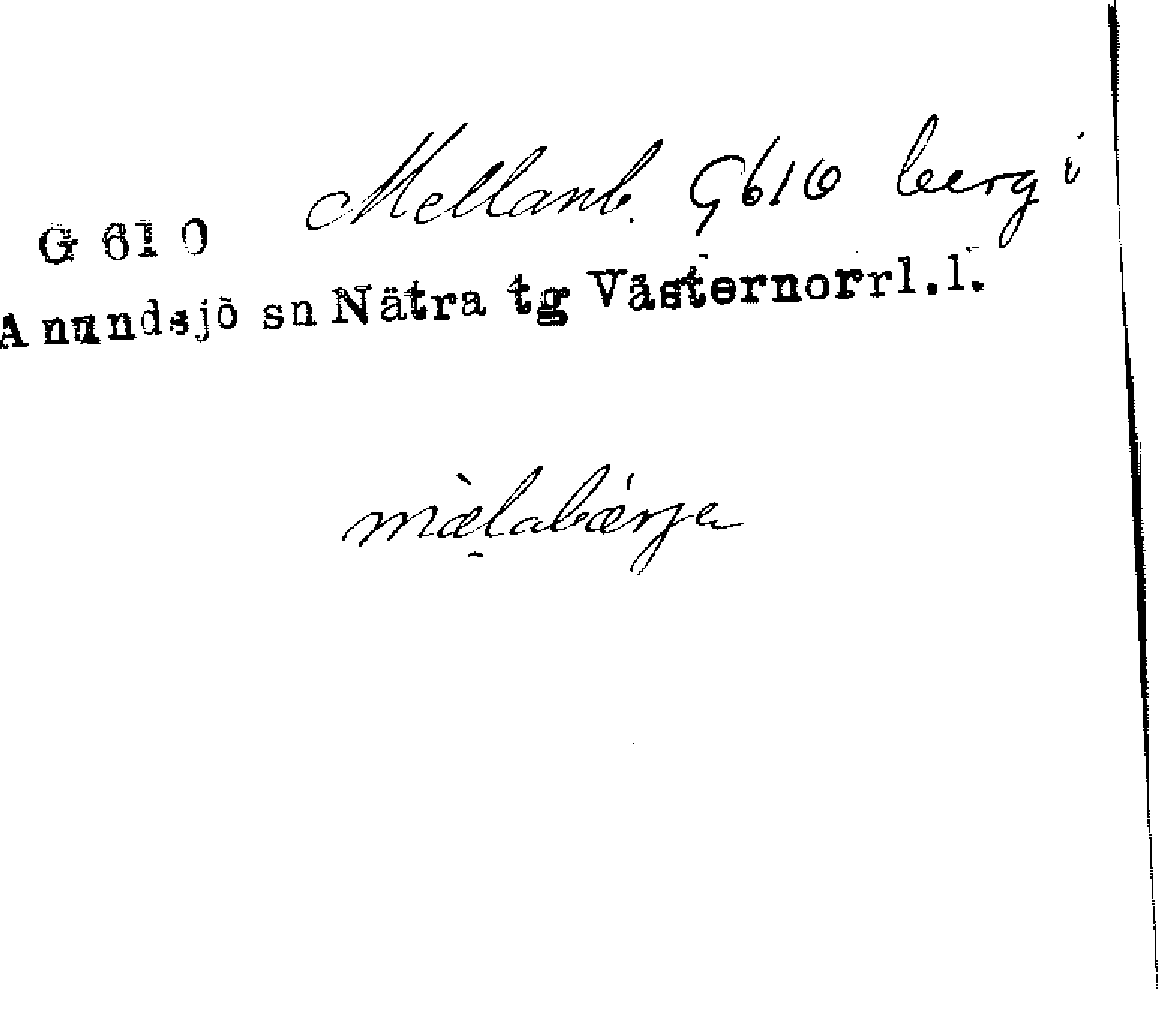 Mellanb. G610 berg i
G 610
Anundsjö sn Nätra tg Västernorrl.l.
mæ̀labǽrjα